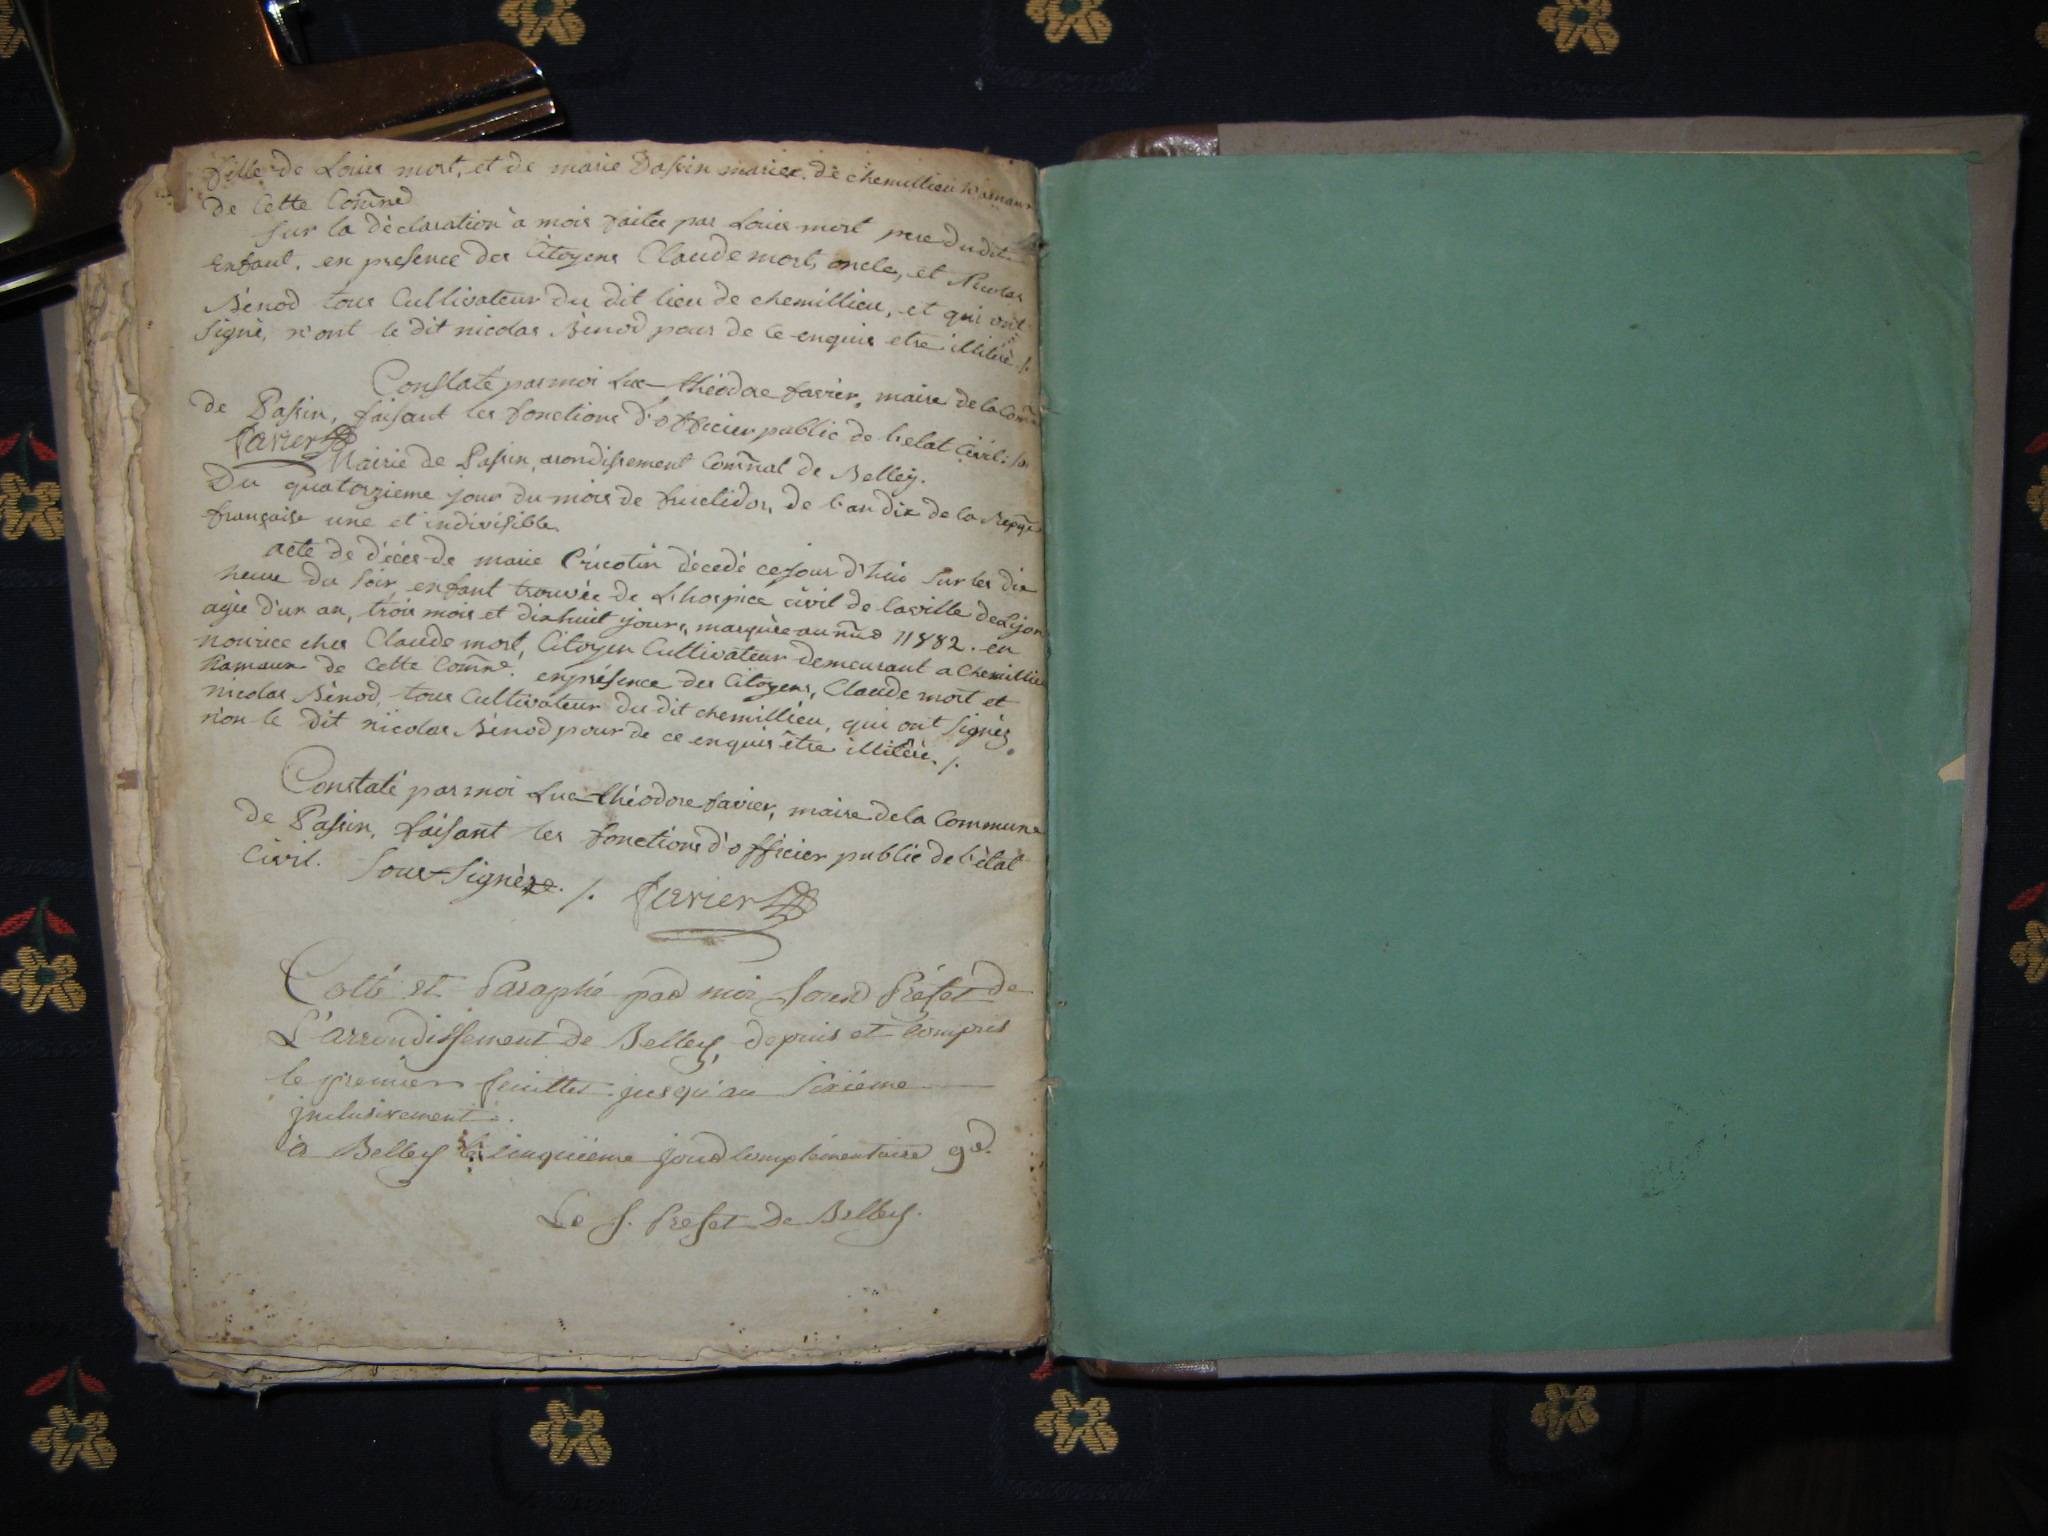 fille de Louis mort, et de marie Passin mariée. de chemillieu hamaux
de Cette Com̄ne
Sur la déclaration à mois faitte par Louis mort pere du dit
Enfant. en presence des Citoyens Claude mort, oncle, et Nicolas
Bénod tous Cultivateur du dit lieu de chemillieu, et qui ont
Signé, n'ont le dit nicolas Bénod pour de ce enquis etre illitéré ./.
Constaté par moi Luc théodore favier, maire de la Com̄ne
de Passin, faisant les fonctions d'officier public de l'etat Civil.
Favier
Mairie de Passin, arondissement Com̄nal de Belley.
Du quatorzieme jour du mois de fructidor, de l'an dix de la Repque
française une et indivisible
acte de décés de marie Cricotin décedé ce jour d'hui sur les dix
heure du soir, enfant trouvée de L'hospice civil de la ville de Lyon
agée d'un an, trois mois et dixhuit jours, marquée au nūo 11882. en
nourice chez Claude mort, Citoyen Cultivateur demeurant a Chemillieu
hamaux de Cette Com̄ne. en présence des Citoyens, Claude mort et
nicolas Bénod, tous Cultivateur du dit chemillieu, qui ont Signés
n'on le dit nicolas Bénod pour de ce enquis être illitéré. ./.
Constaté par moi Luc théodore favier, maire de la Commune
de Passin, faisant les fonctions d'officier public de l'état
Civil. Sous-Signé ./. Favier
Cotté et Paraphé par moi Sous Préfet de
L'arrondissement de Belley, depuis et compris
le premier feuillet jusqu'au Sixième
inclusivement.
à Belley le cinquième jour complémentaire 9e
Le S. Préfet de Belley.